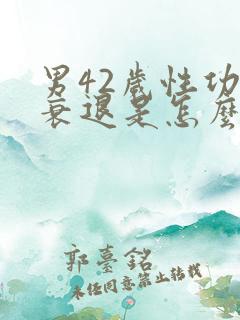 男42歲性功
衰退是怎麼
郭臺銘
未經同意禁止轉載